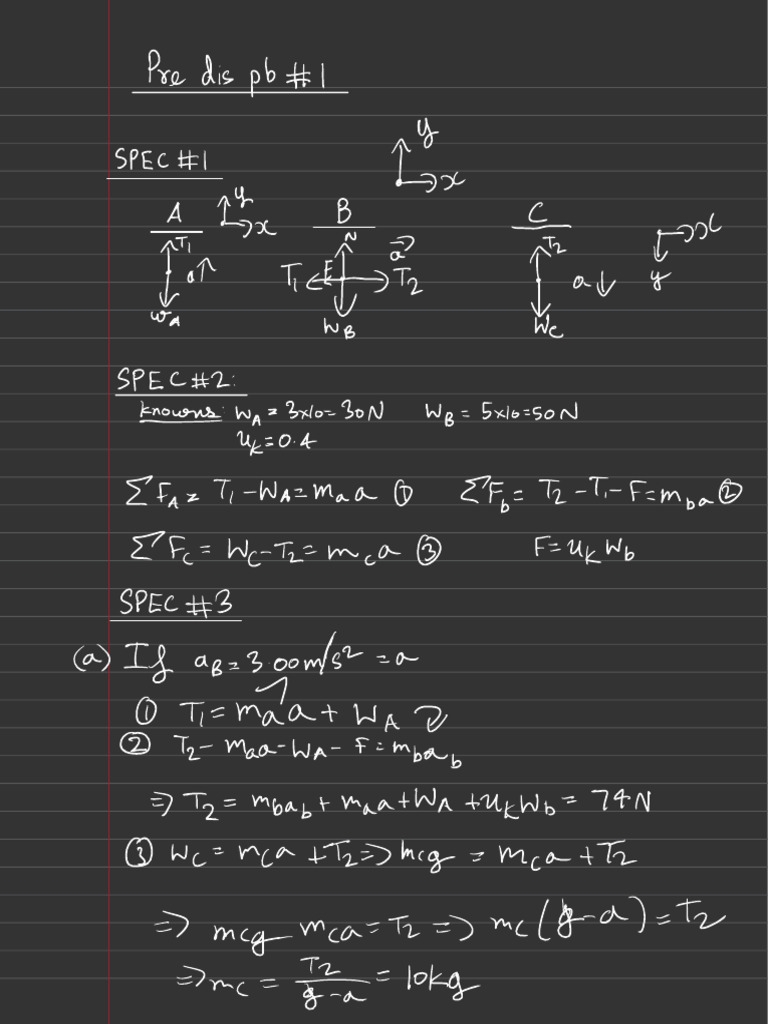 Pre dis pb #1
y
SPEC #1
x
A y x B C
T1 N T2 x
a T1 F a T2 a y
WA WB WC
SPEC #2:
knowns: WA = 3x10 = 30N WB = 5x10 = 50N
uK = 0.4
ΣFA = T1 - WA = maa ① ΣFb = T2 - T1 - F = mba ②
ΣFC = WC - T2 = mca ③ F = uK Wb
SPEC #3
(a) If aB = 3.00m/s² = a
① T1 = maa + WA
② T2 - maa - WA - F = mbab
⇒ T2 = mbab + maa + WA + uKWb = 74N
③ WC = mCa + T2 ⇒ mcg = mca + T2
⇒ mcg - mca = T2 ⇒ mc(g - a) = T2
⇒ mc = T2 / g - a = 10kg